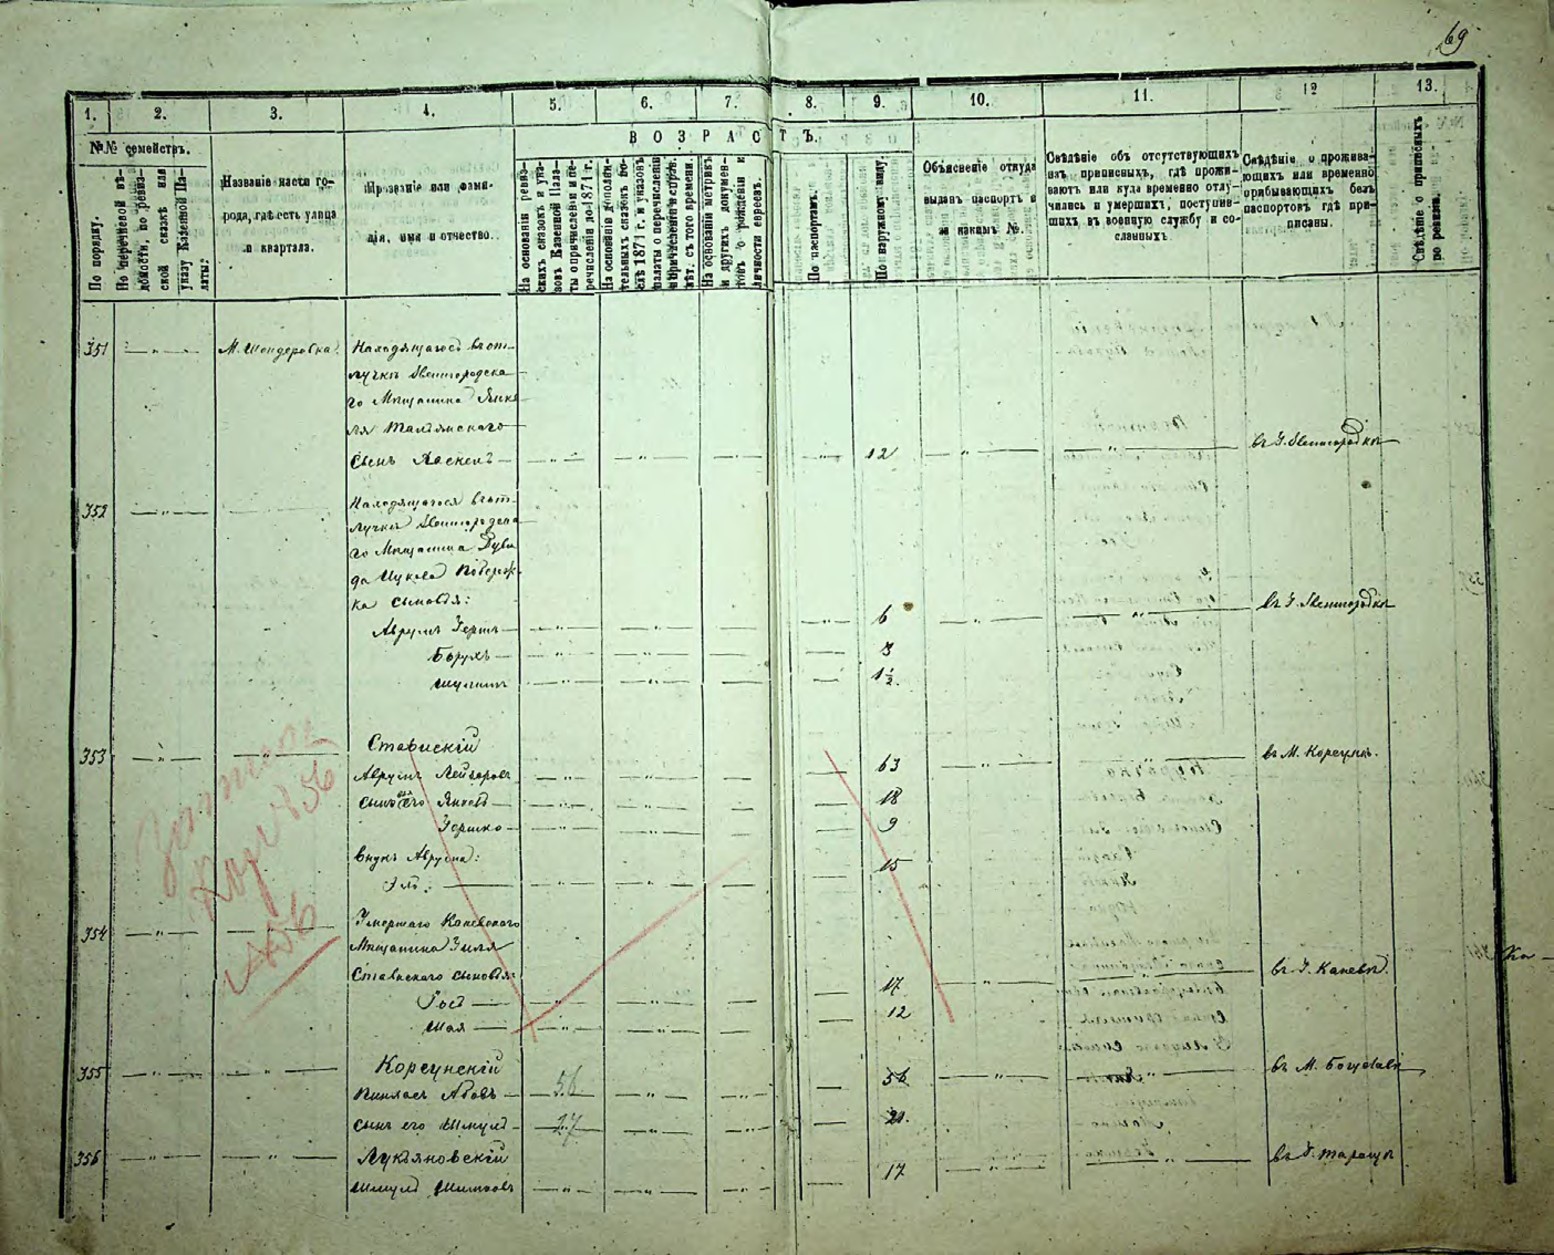 69
1. 2. 3. 4. 5. 6. 7. 8. 9. 10. 11. 12 13.
№№ семействъ.
ВОЗРАСТЪ.
По порядку.
По перечневой вѣ-
домости, по ревиз-
ской сказкѣ или
указу Казенной Па-
латы?
Названіе части го-
рода, гдѣ есть улица
и квартала.
Прозваніе или фами-
лія, имя и отчество.
На основаніи ревиз-
скихъ сказокъ и ука-
зовъ Казенной Пала-
ты о причисленіи и пе-
речисленіи до 1871 г.
На основаніи дополни-
тельныхъ сказокъ по-
слѣ 1871 г. и указовъ
палаты о перечисленіи
причисленіи и справ.
лѣт. съ того времени.
На основаніи метрикъ
и другихъ докумен-
товъ о рожденіи и
личности евреевъ.
По паспортамъ.
По наружному виду.
Объясненіе откуда
выданъ паспортъ и
за какимъ №.
Свѣдѣніе объ отсутствующихъ
изъ приписныхъ, гдѣ прожи-
ваютъ или куда временно отлу-
чились и умершихъ, поступив-
шихъ въ военную службу и со-
сланныхъ.
Свѣдѣніе о прожива-
ющихъ или временно
прибывающихъ безъ
паспортовъ гдѣ при-
писаны.
Свѣдѣніе о приписныхъ
по ревизіи.
351 М. Шендеровка. Находящагося въ от-
лучкѣ Звенигородска-
го Мѣщанина Янке
ля Тальянскаго
сынъ Хаскель 12 въ Г. Звенигородкѣ
352 Находящагося въ от-
лучкѣ Звенигородска
го Мѣщанина Дуви
да Ицкова
ка сыновья:
Аврумъ Гершъ 6 въ Г. Звенигородкѣ
Борухъ 3
Шулимъ 1½.
353 Ставискій
Аврумъ Лейзоровъ 63 въ М. Корсунѣ.
сыновья его Янкель 18
Гершко 9
внукъ Аврума: 15
354 Умершаго Каневскаго
Мѣщанина Зиля
Ставискаго сыновья:
Іосъ 17 въ Г. Каневѣ.
Шая 12
355 Корсунскій
Пинхасъ Абовъ 56 56 въ М. Богуславѣ
сынъ его Шмуль 27 21.
356 Лукьяновскій
Шмуль 17 въ Г. Таращѣ